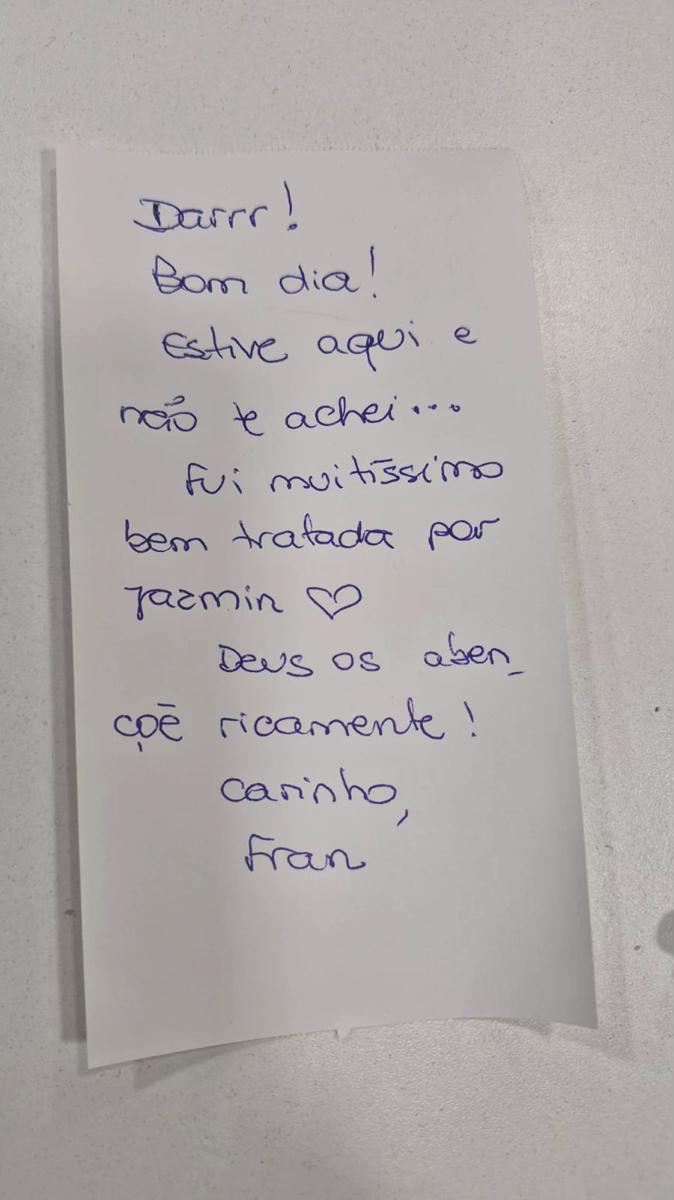 Darrr!
Bom dia!
Estive aqui e
não te achei...
Fui muitíssimo
bem tratada por
Yazmin ♡
Deus os aben_
çoē ricamente!
Carinho,
Fran